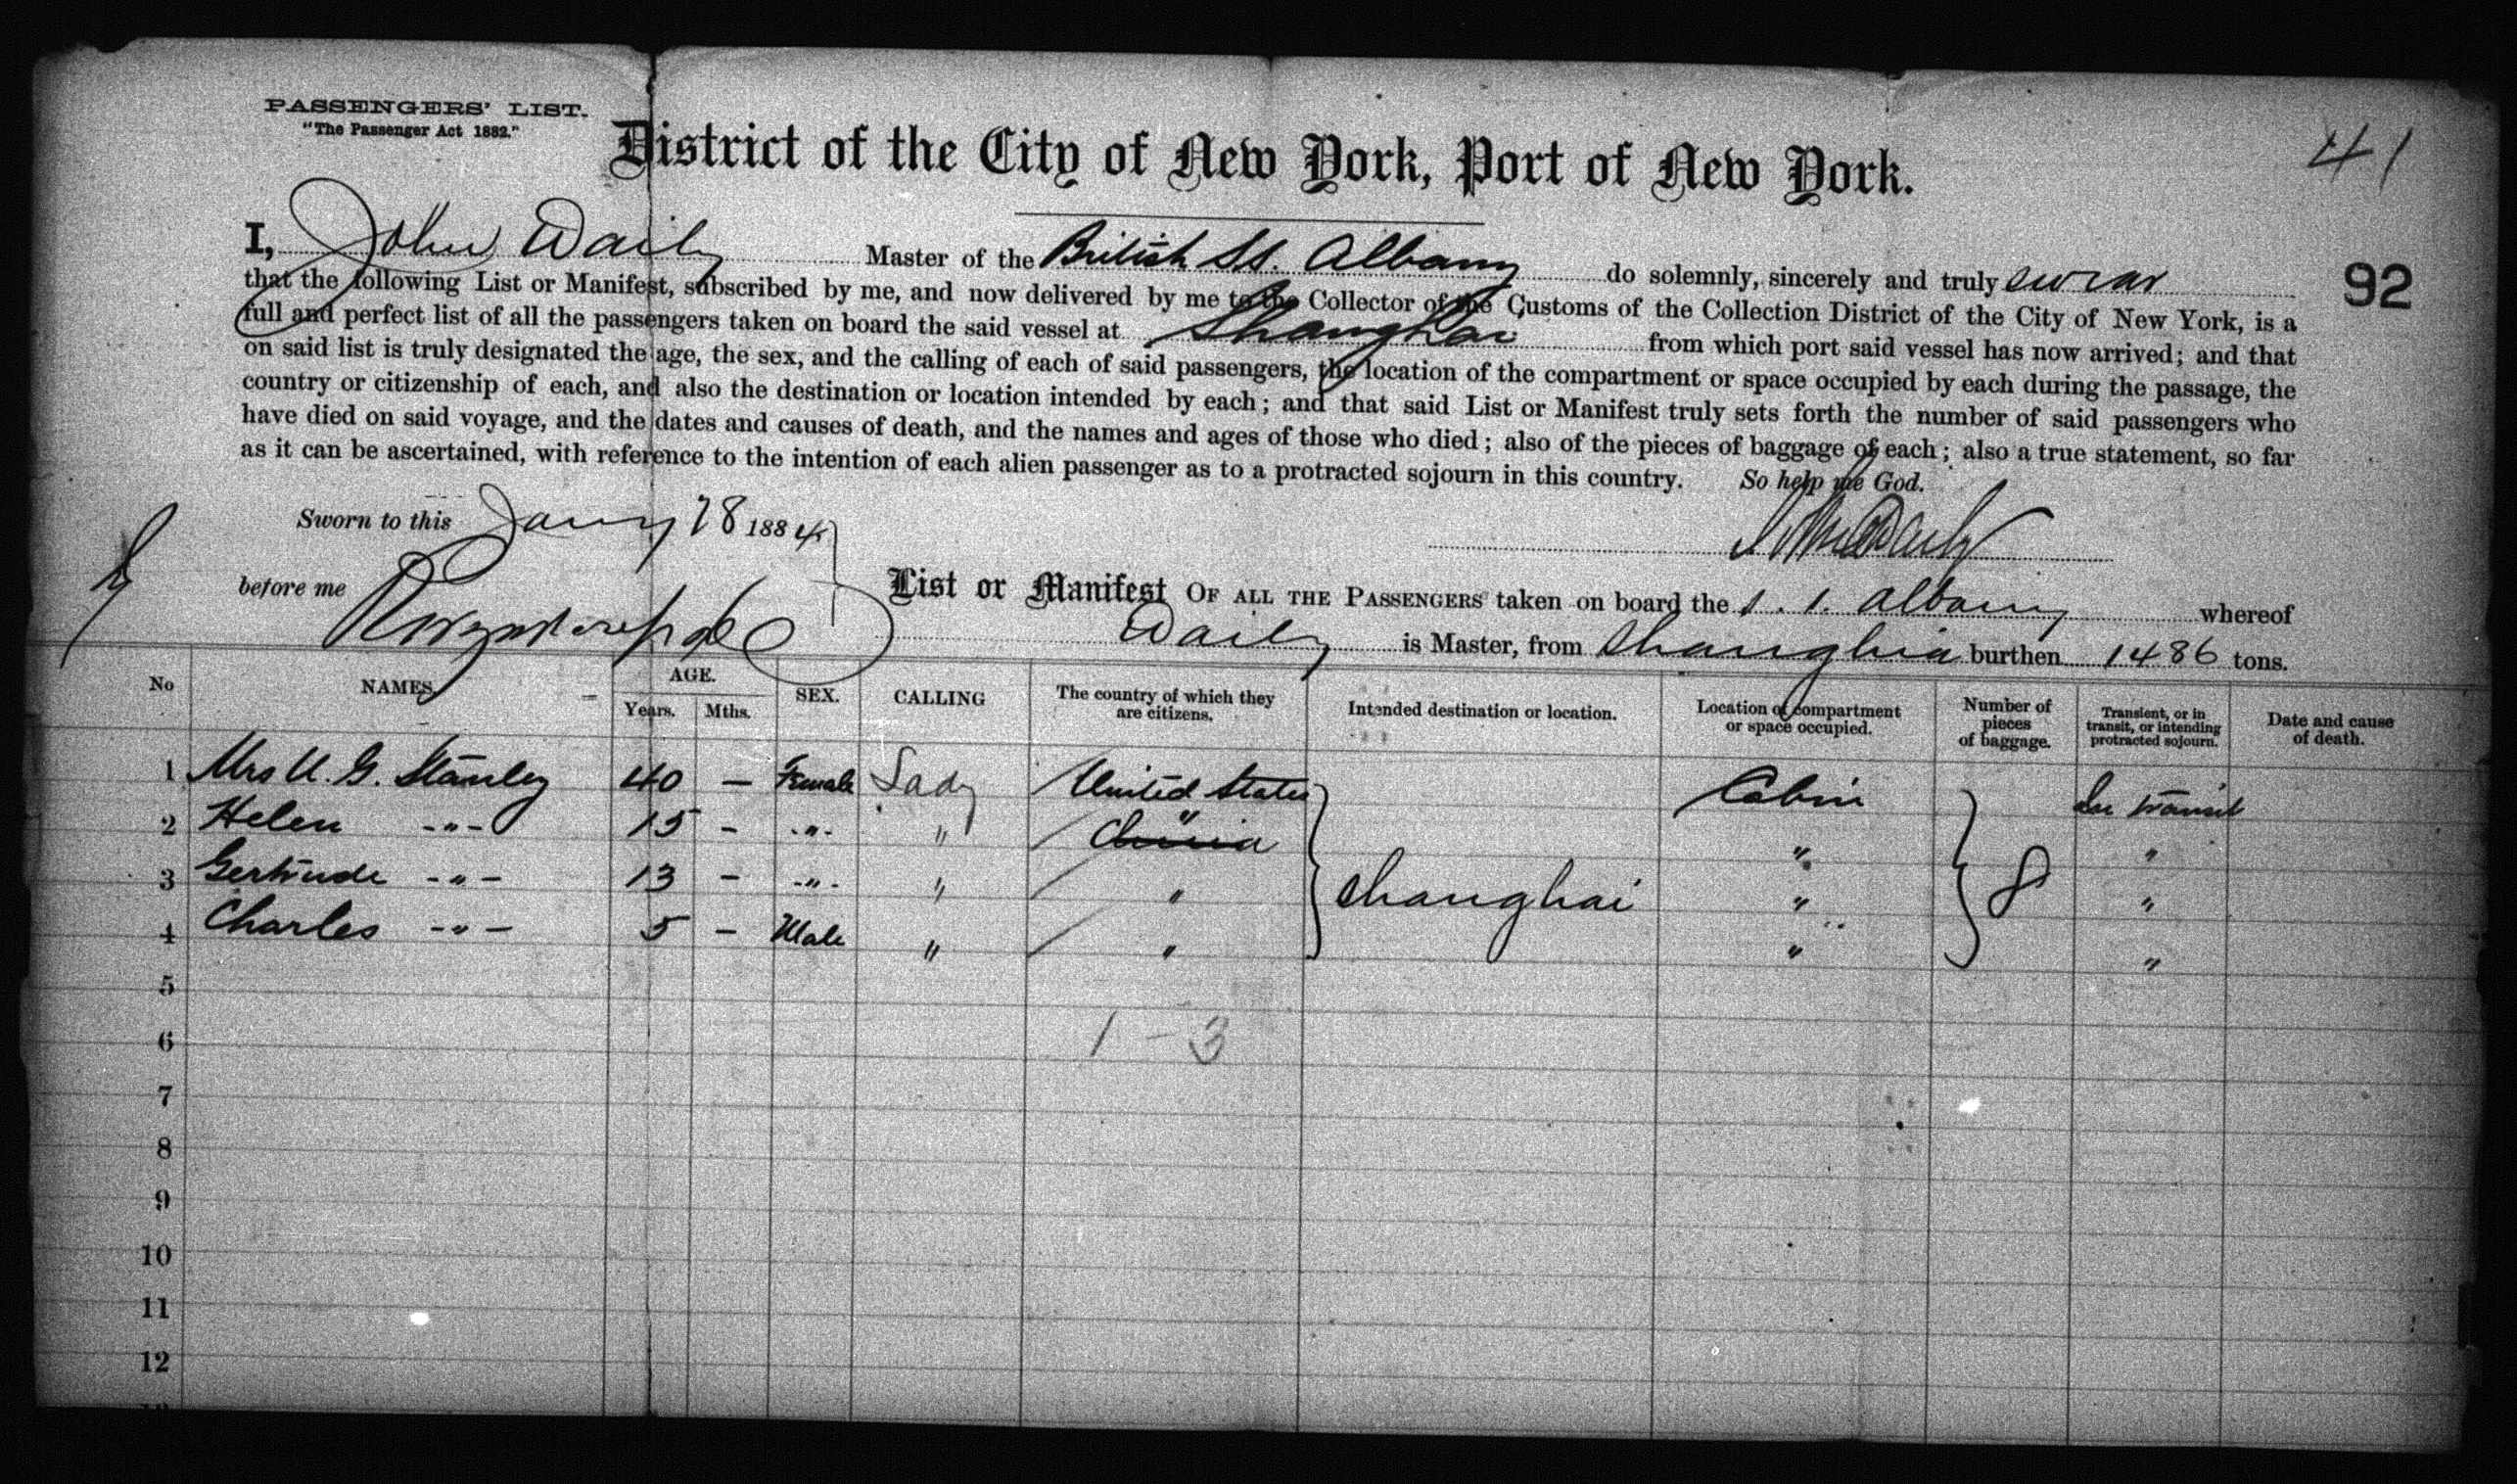 PASSENGERS' LIST.
"The Passenger Act 1882."
District of the City of New York, Port of New York.
41
I, John Daily Master of the British Ss. Albany do solemnly, sincerely and truly swear
92
that the following List or Manifest, subscribed by me, and now delivered by me to the Collector of the Customs of the Collection District of the City of New York, is a
full and perfect list of all the passengers taken on board the said vessel at Shanghai from which port said vessel has now arrived; and that
on said list is truly designated the age, the sex, and the calling of each of said passengers, the location of the compartment or space occupied by each during the passage, the
country or citizenship of each, and also the destination or location intended by each; and that said List or Manifest truly sets forth the number of said passengers who
have died on said voyage, and the dates and causes of death, and the names and ages of those who died; also of the pieces of baggage of each; also a true statement, so far
as it can be ascertained, with reference to the intention of each alien passenger as to a protracted sojourn in this country. So help me God.
Sworn to this Jany 28 1884
John Daily
before me
List or Manifest OF ALL THE PASSENGERS taken on board the s. s. Albany whereof
Daily is Master, from Shanghia burthen 1486 tons.
No NAMES. AGE. Years. Mths. SEX. CALLING The country of which they are citizens. Intended destination or location. Location of compartment or space occupied. Number of pieces of baggage. Transient, or in transit, or intending protracted sojourn. Date and cause of death.
1 Mrs U. G. Stanley 40 — Female Lady United States Cabin In transit
2 Helen -"- 15 - -"- " China " " "
3 Gertrude -"- 13 - -"- " " Shanghai " 8 "
4 Charles -"- 5 - Male " " " "
5
6 1 - 3
7
8
9
10
11
12